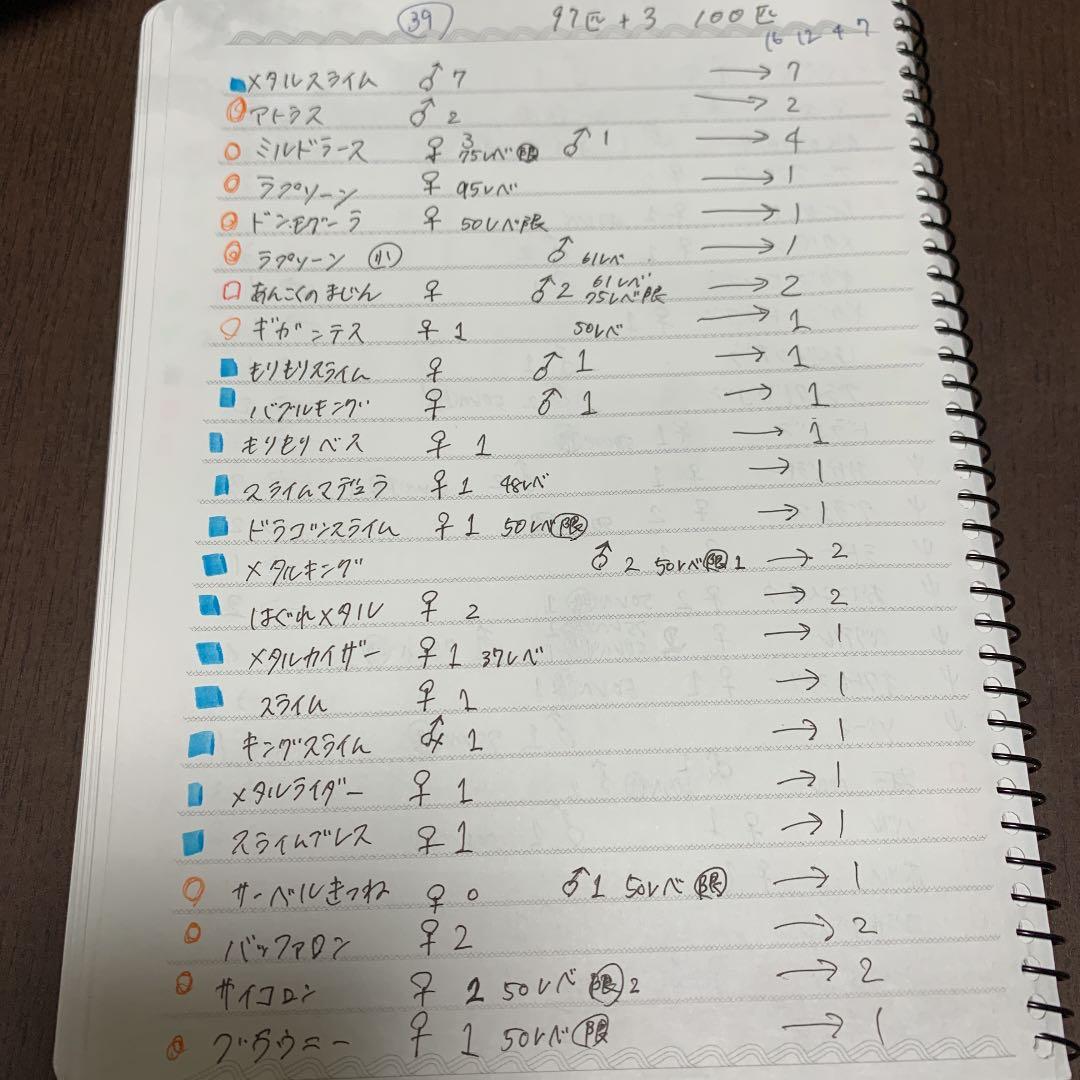 39 97匹+3 100匹
16 12 4 7
メタルスライム ♂7 → 7
アトラス ♂2 → 2
ミルドラース ♀3 75レベ限 ♂1 → 4
ラプソーン ♀ 95レベ → 1
ドン・モグーラ ♀ 50レベ限 → 1
ラプソーン 小 ♂ 61レベ → 1
あんこくのまじん ♀ ♂2 61レベ 75レベ限 → 2
ギガンテス ♀1 50レベ → 1
もりもりスライム ♀ ♂1 → 1
バブルキング ♀ ♂1 → 1
もりもりベス ♀1 → 1
スライムマデュラ ♀1 48レベ → 1
ドラゴンスライム ♀1 50レベ限 → 1
メタルキング ♂2 50レベ限1 → 2
はぐれメタル ♀2 → 2
メタルカイザー ♀1 37レベ → 1
スライム ♀1 → 1
キングスライム ♂1 → 1
メタルライダー ♀1 → 1
スライムブレス ♀1 → 1
サーベルきつね ♀0 ♂1 50レベ限 → 1
バッファロン ♀2 → 2
サイコロン ♀2 50レベ限2 → 2
ブラウニー ♀1 50レベ限 → 1